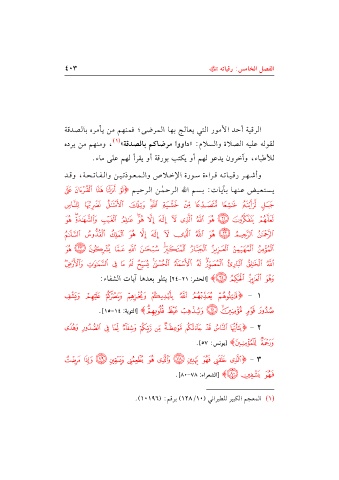 الفصل الخامس: رقياته ﷺ ٤٠٣
الرقية أحد الأمور التي يعالج بها المرضى؛ فمنهم من يأمره بالصدقة
لقوله عليه الصلاة والسلام: «داووا مرضاكم بالصدقة»(١)، ومنهم من يرده
للأطباء، وآخرون يدعو لهم أو يكتب بورقة أو يقرأ لهم على ماء.
وأشهر رقياته قراءة سورة الإخلاص والمعوذتين والفاتحة، وقد
يستعيض عنها بآيات: بسم الله الرحمٰن الرحيم ﴿لَوْ أَنزَلْنَا هَٰذَا الْقُرْءَانَ عَلَىٰ
جَبَلٍ لَّرَأَيْتَهُ خَاشِعًا مُّتَصَدِّعًا مِّنْ خَشْيَةِ اللَّهِ وَتِلْكَ الْأَمْثَالُ نَضْرِبُهَا لِلنَّاسِ
لَعَلَّهُمْ يَتَفَكَّرُونَ ۝ هُوَ اللَّهُ الَّذِي لَا إِلَٰهَ إِلَّا هُوَ عَالِمُ الْغَيْبِ وَالشَّهَادَةِ هُوَ
الرَّحْمَٰنُ الرَّحِيمُ ۝ هُوَ اللَّهُ الَّذِي لَا إِلَٰهَ إِلَّا هُوَ الْمَلِكُ الْقُدُّوسُ السَّلَامُ
الْمُؤْمِنُ الْمُهَيْمِنُ الْعَزِيزُ الْجَبَّارُ الْمُتَكَبِّرُ سُبْحَانَ اللَّهِ عَمَّا يُشْرِكُونَ ۝ هُوَ
اللَّهُ الْخَالِقُ الْبَارِئُ الْمُصَوِّرُ لَهُ الْأَسْمَاءُ الْحُسْنَىٰ يُسَبِّحُ لَهُ مَا فِي السَّمَاوَاتِ وَالْأَرْضِ
وَهُوَ الْعَزِيزُ الْحَكِيمُ ۝﴾ [الحشر: ٢١-٢٤] يتلو بعدها آيات الشفاء:
١ - ﴿قَاتِلُوهُمْ يُعَذِّبْهُمُ اللَّهُ بِأَيْدِيكُمْ وَيُخْزِهِمْ وَيَنصُرْكُمْ عَلَيْهِمْ وَيَشْفِ
صُدُورَ قَوْمٍ مُّؤْمِنِينَ ۝ وَيُذْهِبْ غَيْظَ قُلُوبِهِمْ﴾ [التوبة: ١٤-١٥].
٢ - ﴿يَا أَيُّهَا النَّاسُ قَدْ جَاءَتْكُم مَّوْعِظَةٌ مِّن رَّبِّكُمْ وَشِفَاءٌ لِّمَا فِي الصُّدُورِ وَهُدًى
وَرَحْمَةٌ لِّلْمُؤْمِنِينَ﴾ [يونس: ٥٧].
٣ - ﴿الَّذِي خَلَقَنِي فَهُوَ يَهْدِينِ ۝ وَالَّذِي هُوَ يُطْعِمُنِي وَيَسْقِينِ ۝ وَإِذَا مَرِضْتُ
فَهُوَ يَشْفِينِ ۝﴾ [الشعراء: ٧٨-٨٠].
(١) المعجم الكبير للطبراني (١٠/١٢٨) برقم: (١٠١٩٦).